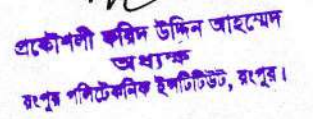 প্রকৌশলী ফরিদ উদ্দিন আহম্মেদ
অধ্যক্ষ
রংপুর পলিটেকনিক ইন্সটিটিউট, রংপুর।